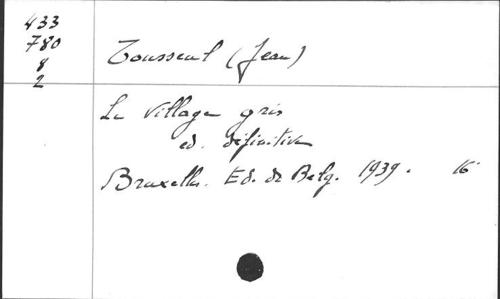 433
780
8
2
Tousseul (Jean)
Le Village gris
ed. définitive
Bruxelles. Ed. de Belg. 1939. 16°